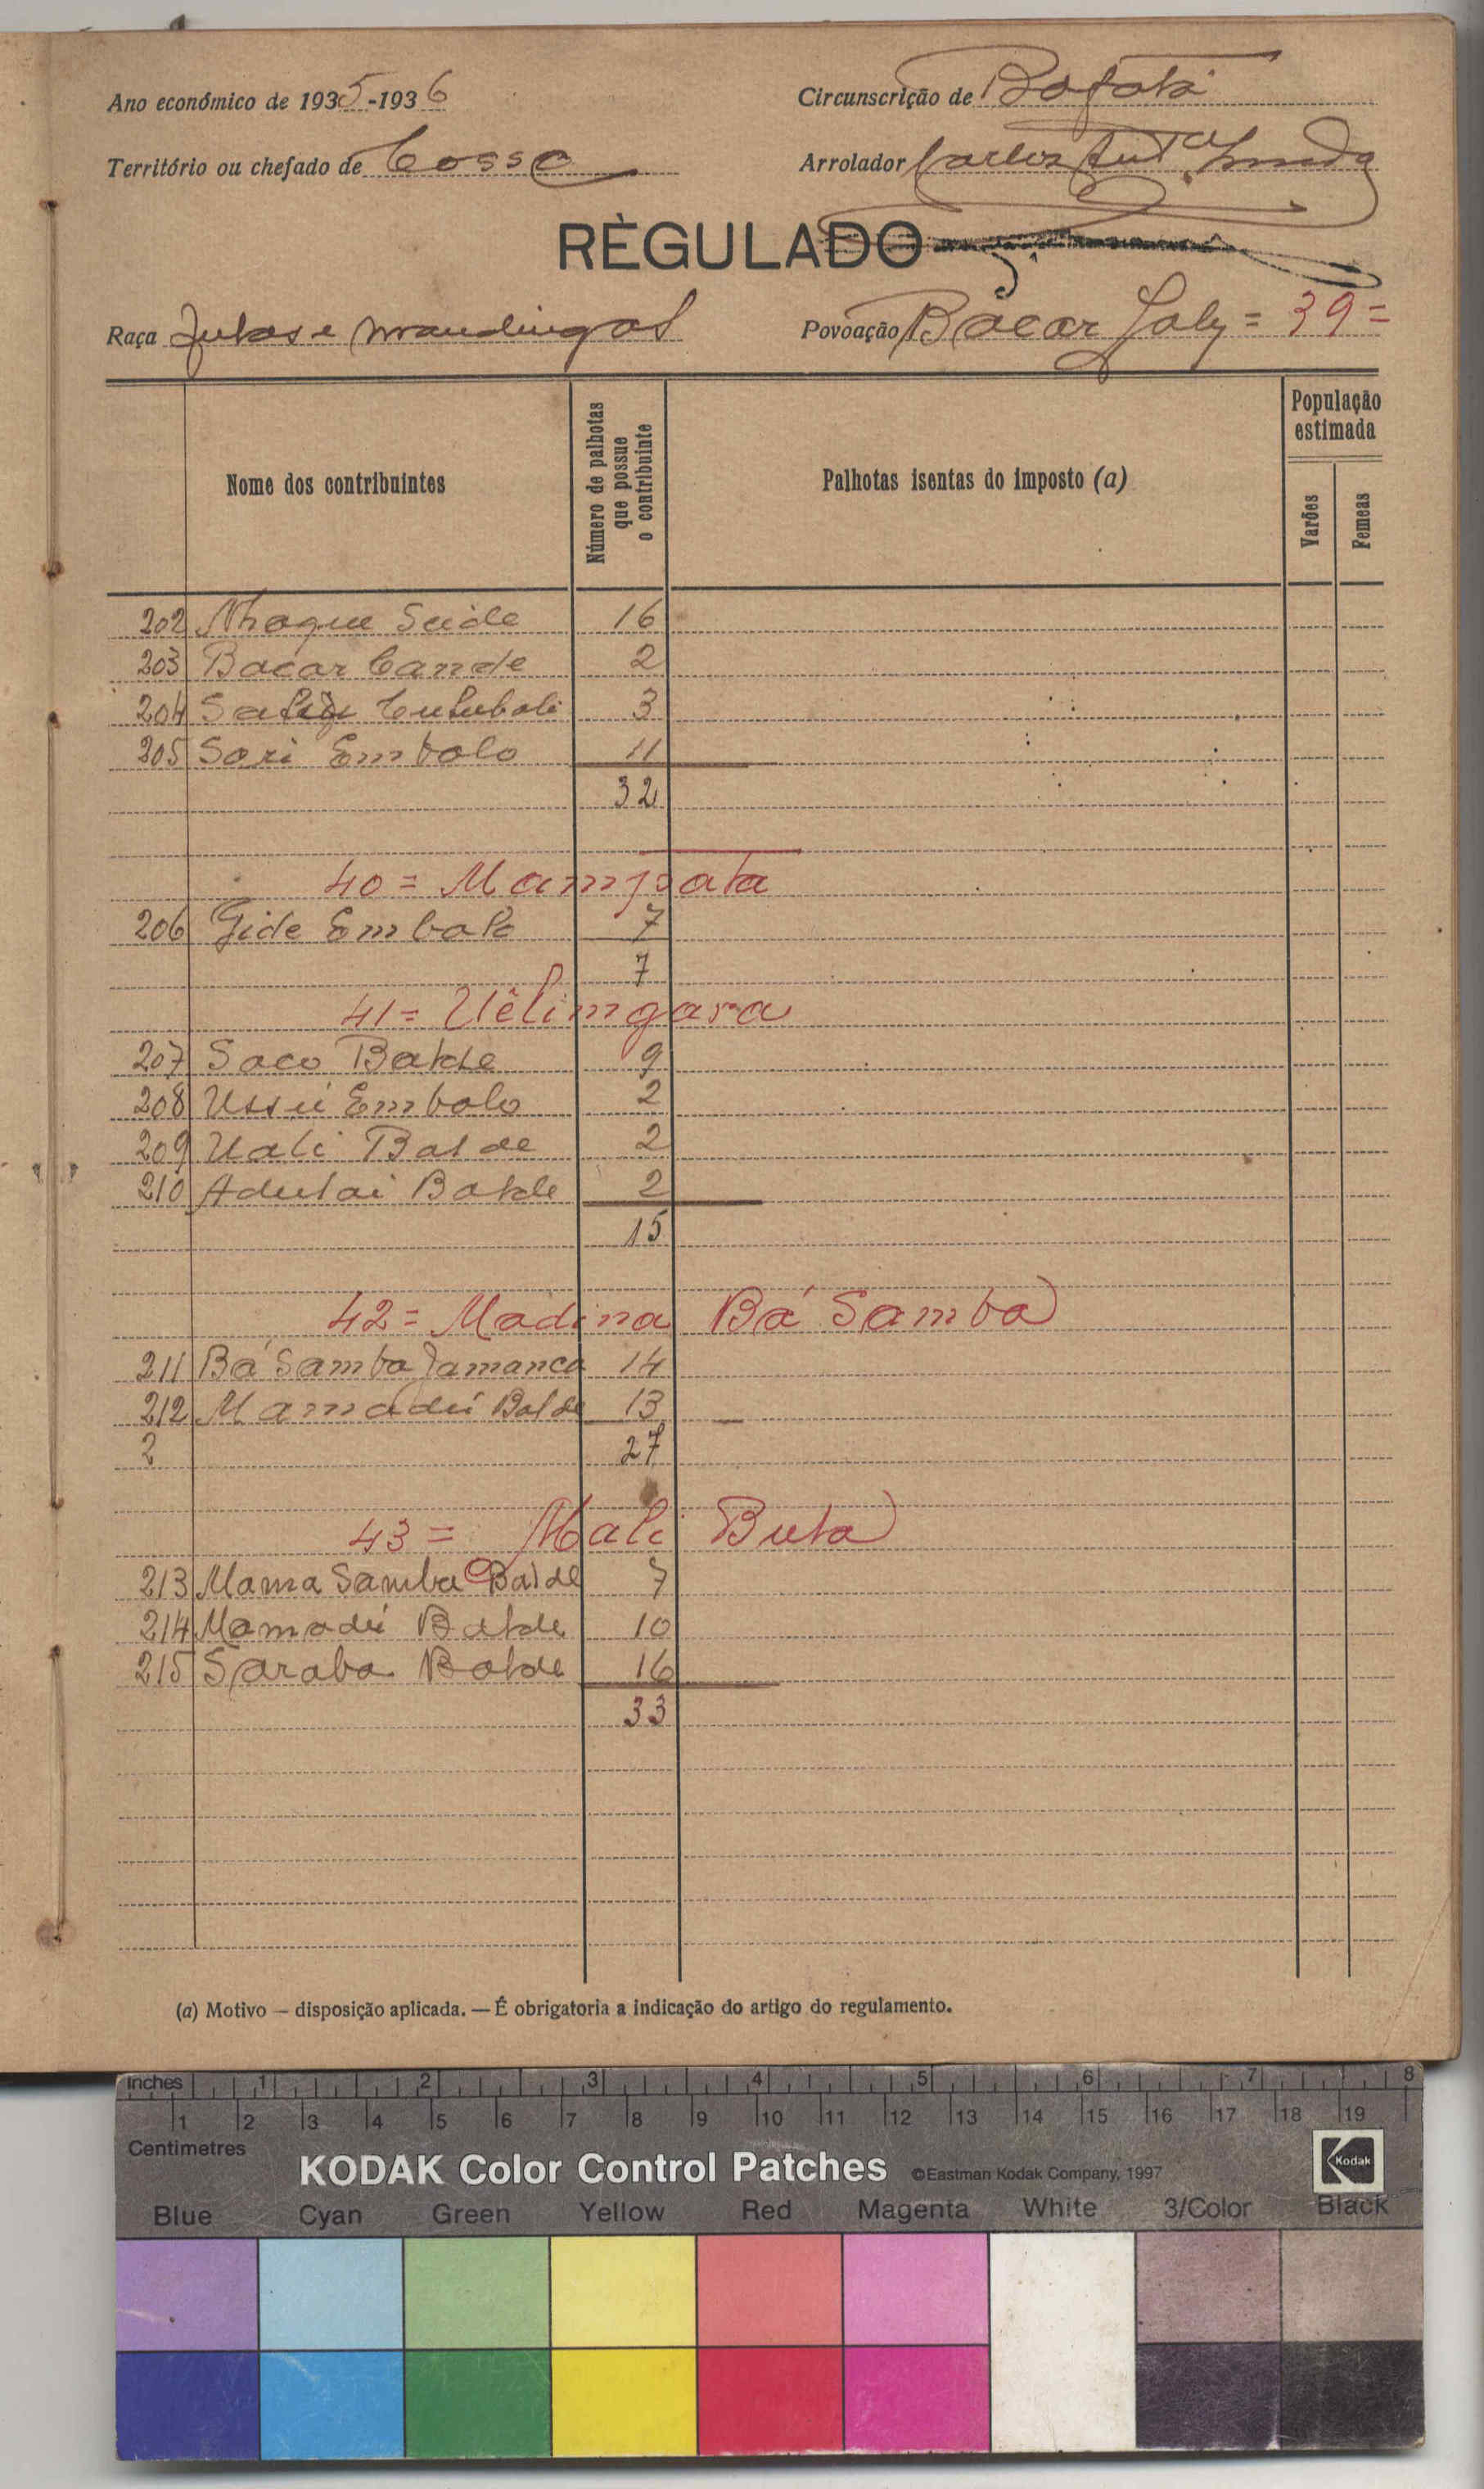 Ano económico de 1935-1936 Circunscrição de Bafatá
Território ou chefado de Cosse Arrolador Carlos
RÈGULADO
Raça Fulas e mandingas Povoação Bácar Jaly = 39 =
Nome dos contribuintes
Número de palhotas que possue o contribuinte
Palhotas isentas do imposto (a)
População estimada
Varões
Femeas
202 Nhaque Seide 16
203 Bacar Cande 2
204 3
205 Sori Embalo 11
32
40 = Mampata
206 Gide Embalo 7
7
41 = Uêlingara
207 Saco Balde 9
208 Ussú Embalo 2
209 Uali Balde 2
210 Adulai Balde 2
15
42 = Madina Bá Samba
211 Bá Samba Jamanca 14
212 Mamadú Balde 13
2 27
43 = Mali Buta
213 Mama Samba Balde 7
214 Mamadú Balde 10
215 Saraba Balde 16
33
(a) Motivo — disposição aplicada. — É obrigatoria a indicação do artigo do regulamento.
Inches 1 2 3 4 5 6 7 8
1 2 3 4 5 6 7 8 9 10 11 12 13 14 15 16 17 18 19
Centimetres
KODAK Color Control Patches ©Eastman Kodak Company, 1997 Kodak
Blue Cyan Green Yellow Red Magenta White 3/Color Black